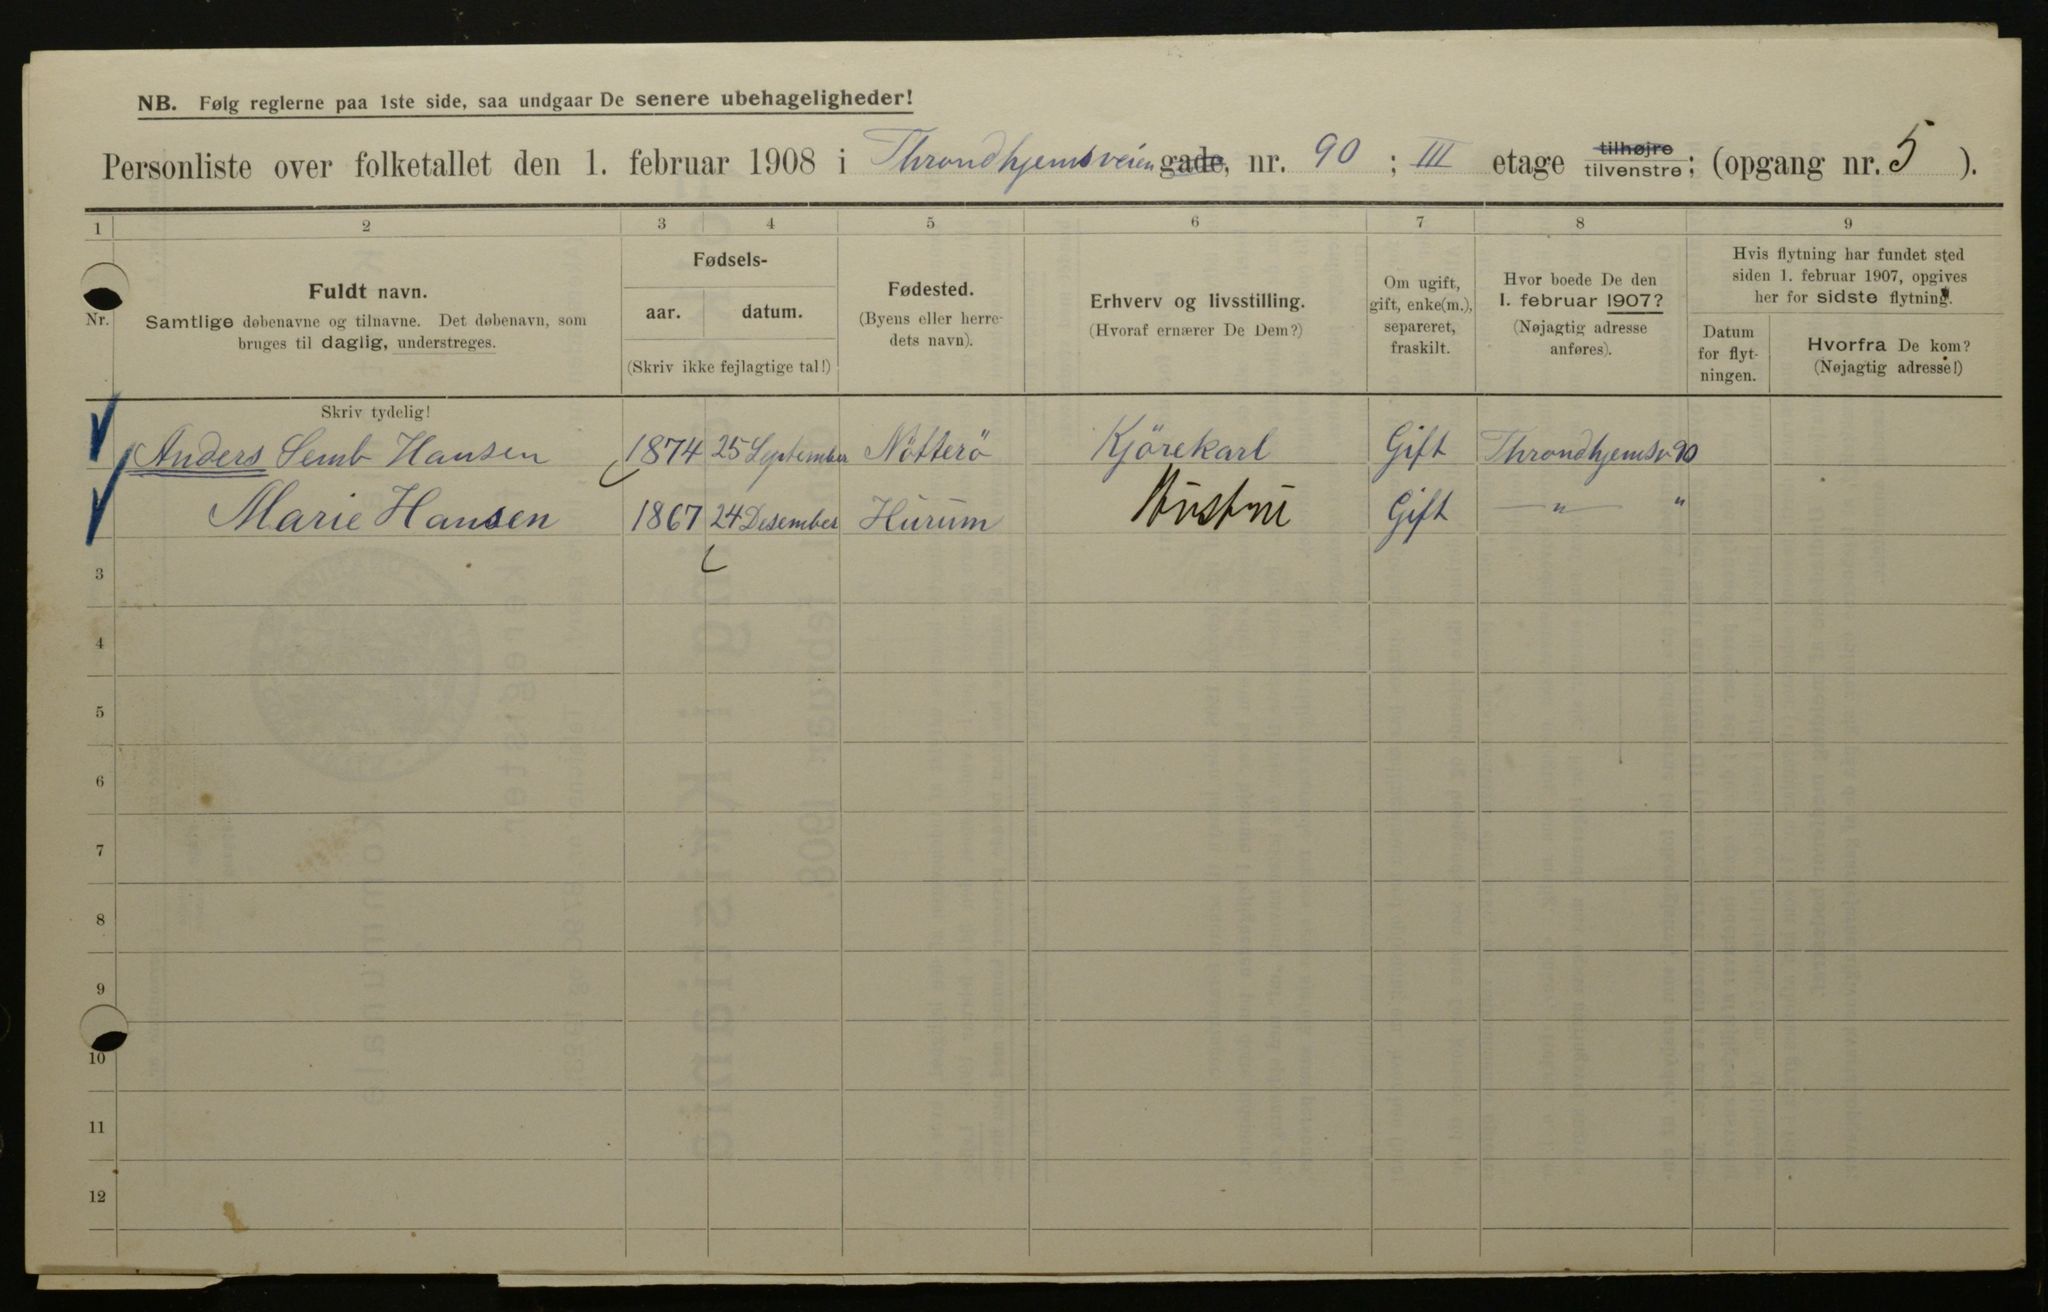 NB. Følg reglerne paa 1ste side, saa undgaar De senere ubehageligheder!
Personliste over folketallet den 1. februar 1908 i Throndhjemsveien gade, nr. 90 ; III etage tilhøjre tilvenstre ; (opgang nr. 5 ).
1 2 3 4 5 6 7 8 9
Nr.
Fuldt navn.
Samtlige døbenavne og tilnavne. Det døbenavn, som
bruges til daglig, understreges.
Fødsels-
aar. datum.
(Skriv ikke fejlagtige tal!)
Fødested.
(Byens eller herre-
dets navn).
Erhverv og livsstilling.
(Hvoraf ernærer De Dem?)
Om ugift,
gift, enke(m.),
separeret,
fraskilt.
Hvor boede De den
1. februar 1907?
(Nøjagtig adresse
anføres).
Hvis flytning har fundet sted
siden 1. februar 1907, opgives
her for sidste flytning.
Datum
for flyt-
ningen.
Hvorfra De kom?
(Nøjagtig adresse!)
Skriv tydelig!
Anders Semb Hansen 1874 25 September Nötterö Kjörekarl Gift Throndhjemsv 90
Marie Hansen 1867 24 Desember Hurum Hustru Gift — " — "
3
4
5
6
7
8
9
10
11
12